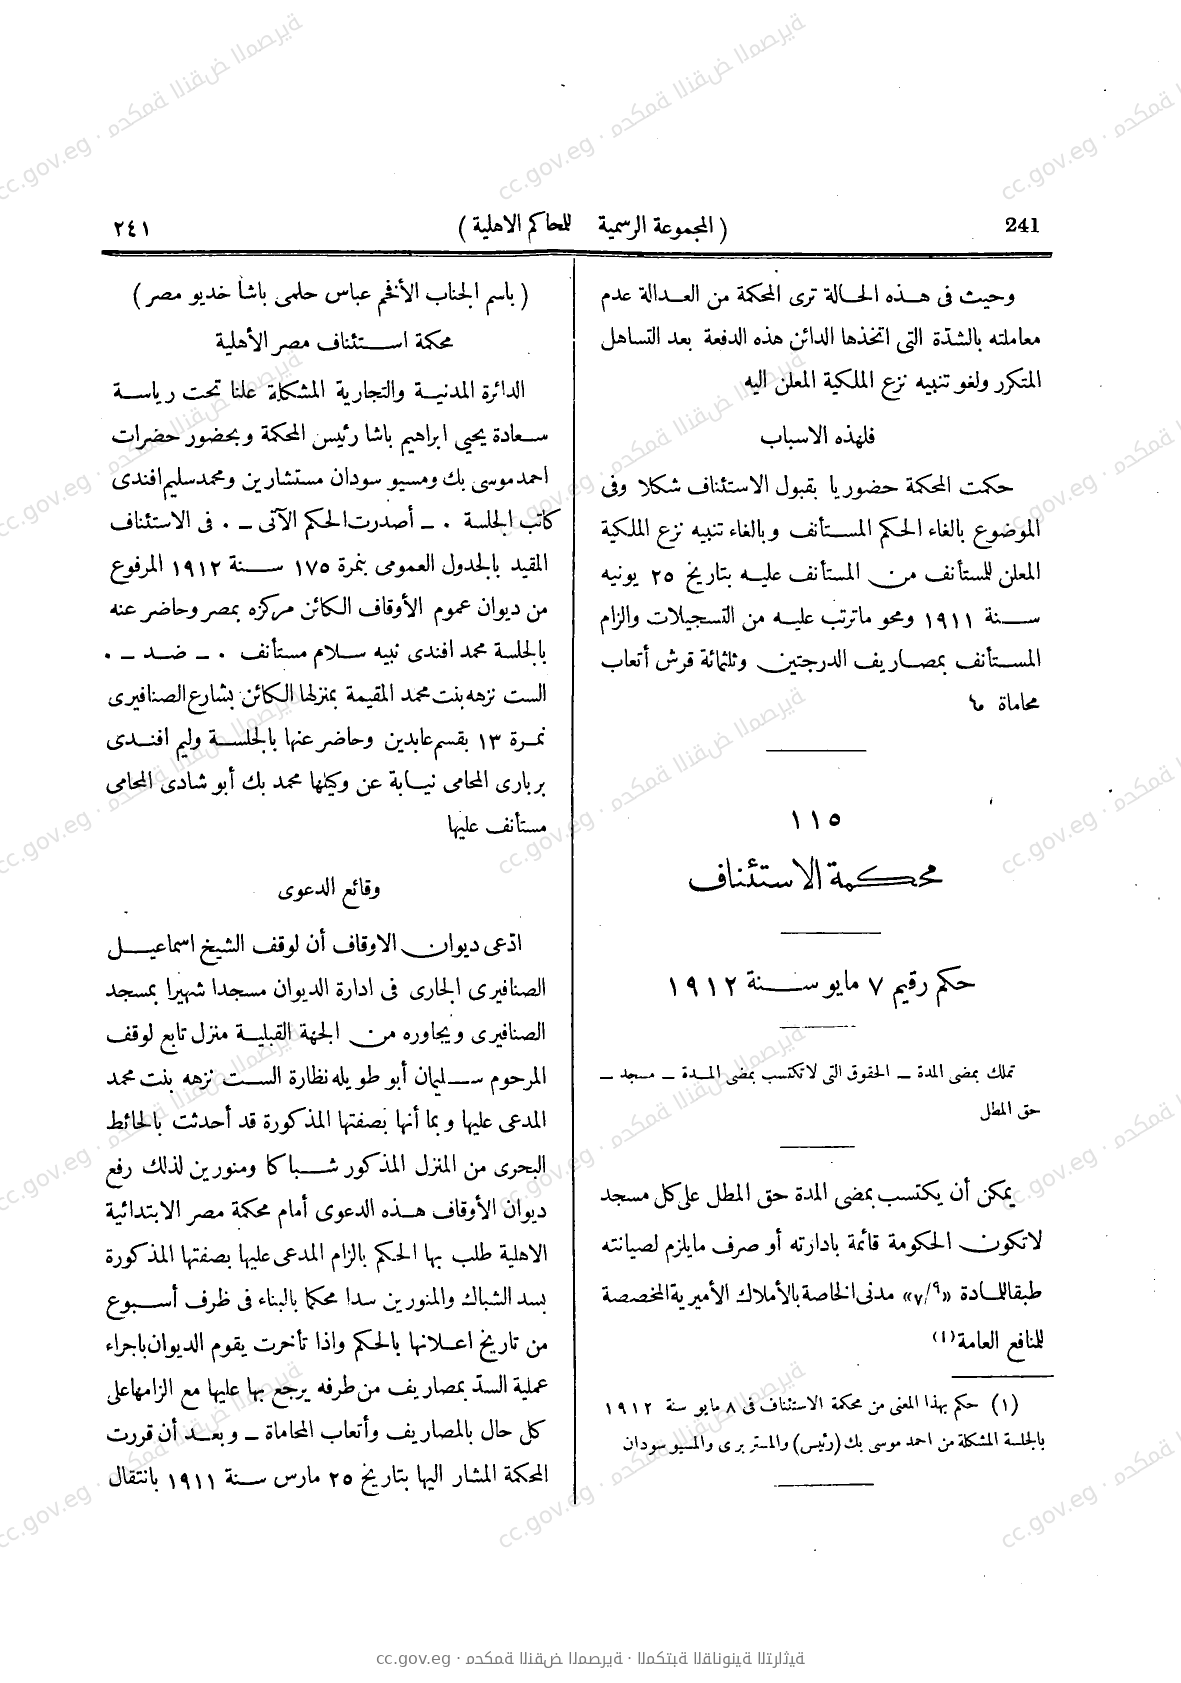 241
( المجموعة الرسمية للمحاكم الاهلية )
٢٤١
وحيث فى هذه الحالة ترى المحكمة من العدالة عدم
معاملته بالشدّة التى اتخذها الدائن هذه الدفعة بعد التساهل
المتكرر ولغو تنبيه نزع الملكية المعلن اليه
فلهذه الاسباب
حكمت المحكمة حضوريا بقبول الاستئناف شكلا وفى
الموضوع بالغاء الحكم المستأنف وبالغاء تنبيه نزع الملكية
المعلن للمستأنف من المستأنف عليه بتاريخ ٢٥ يونيه
سنة ١٩١١ ومحو ماترتب عليه من التسجيلات والزام
المستأنف بمصاريف الدرجتين وثلثمائة قرش أتعاب
محاماة
١١٥
محكمة الاستئناف
حكم رقيم ٧ مايو سنة ١٩١٢
تملك بمضى المدة ـ الحقوق التى لاتكتسب بمضى المدة ـ مسجد ـ
حق المطل
يمكن أن يكتسب بمضى المدة حق المطل على كل مسجد
لاتكون الحكومة قائمة بادارته أو صرف مايلزم لصيانته
طبقا للمادة «٧/٩» مدنى الخاصة بالأملاك الأميرية المخصصة
للمنافع العامة(١)
(١) حكم بهذا المعنى من محكمة الاستئناف فى ٨ مايو سنة ١٩١٢
بالجلسة المشكلة من احمد موسى بك (رئيس) والمستر برى والمسيو سودان
( باسم الجناب الأفخم عباس حلمى باشا خديو مصر )
محكمة استئناف مصر الأهلية
الدائرة المدنية والتجارية المشكلة علنا تحت رياسة
سعادة يحيى ابراهيم باشا رئيس المحكمة وبحضور حضرات
احمد موسى بك ومسيو سودان مستشارين ومحمد سليم افندى
كاتب الجلسة . ـ أصدرت الحكم الآتى ـ . فى الاستئناف
المقيد بالجدول العمومى بنمرة ١٧٥ سنة ١٩١٢ المرفوع
من ديوان عموم الأوقاف الكائن مركزه بمصر وحاضر عنه
بالجلسة محمد افندى نبيه سلام مستأنف . ـ ضد ـ .
الست نزهه بنت محمد المقيمة بمنزلها الكائن بشارع الصنافيرى
نمرة ١٣ بقسم عابدين وحاضر عنها بالجلسة وليم افندى
بربارى المحامى نيابة عن وكيلها محمد بك أبو شادى المحامى
مستأنف عليها
وقائع الدعوى
ادّعى ديوان الاوقاف أن لوقف الشيخ اسماعيل
الصنافيرى الجارى فى ادارة الديوان مسجدا شهيرا بمسجد
الصنافيرى ويجاوره من الجهة القبلية منزل تابع لوقف
المرحوم سليمان أبو طويله نظارة الست نزهه بنت محمد
المدعى عليها وبما أنها بصفتها المذكورة قد أحدثت بالحائط
البحرى من المنزل المذكور شباكا ومنورين لذلك رفع
ديوان الأوقاف هذه الدعوى أمام محكمة مصر الابتدائية
الاهلية طلب بها الحكم بالزام المدعى عليها بصفتها المذكورة
بسد الشباك والمنورين سدا محكما بالبناء فى ظرف أسبوع
من تاريخ اعلانها بالحكم واذا تأخرت يقوم الديوان باجراء
عملية السدّ بمصاريف من طرفه يرجع بها عليها مع الزامها على
كل حال بالمصاريف وأتعاب المحاماة ـ وبعد أن قررت
المحكمة المشار اليها بتاريخ ٢٥ مارس سنة ١٩١١ بانتقال
cc.gov.eg · محكمة النقض المصرية · المكتبة القانونية التراثية